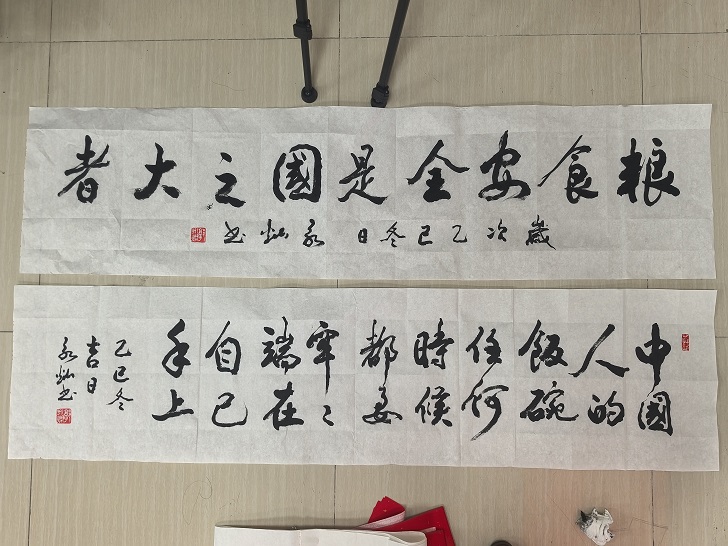 粮食安全是國之大者
歲次乙巳冬日 永灿书
中國
人的
飯碗
任何
時候
都要
牢々
端在
自己
手上
乙巳冬
吉日
永灿书